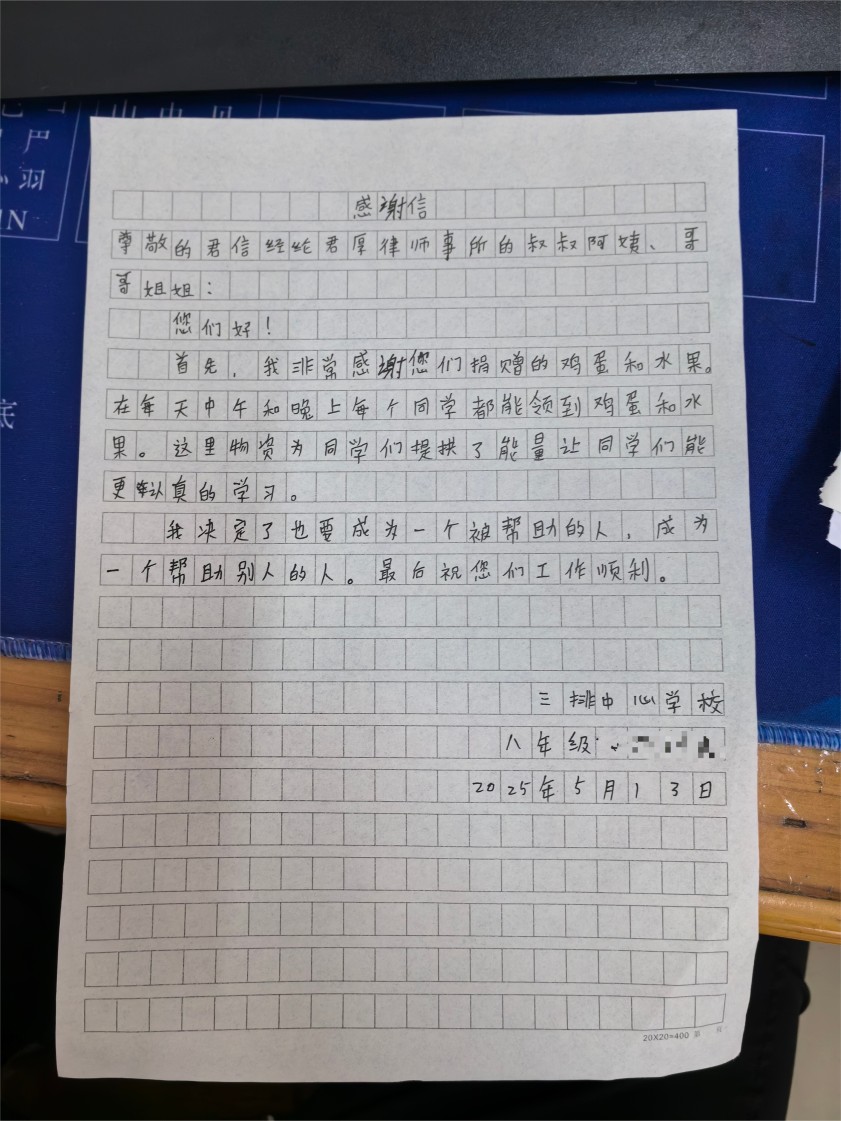 感谢信
尊敬的君信经纶君厚律师事所的叔叔阿姨、哥
哥姐姐：
您们好！
首先，我非常感谢您们捐赠的鸡蛋和水果。
在每天中午和晚上每个同学都能领到鸡蛋和水
果。这里物资为同学们提拱了能量让同学们能
更认真的学习。
我决定了也要成为一个被帮助的人，成为
一个帮助别人的人。最后祝您们工作顺利。
三排中心学校
八年级
2025年5月13日
20X20=400 第 页
底
严
羽
IN